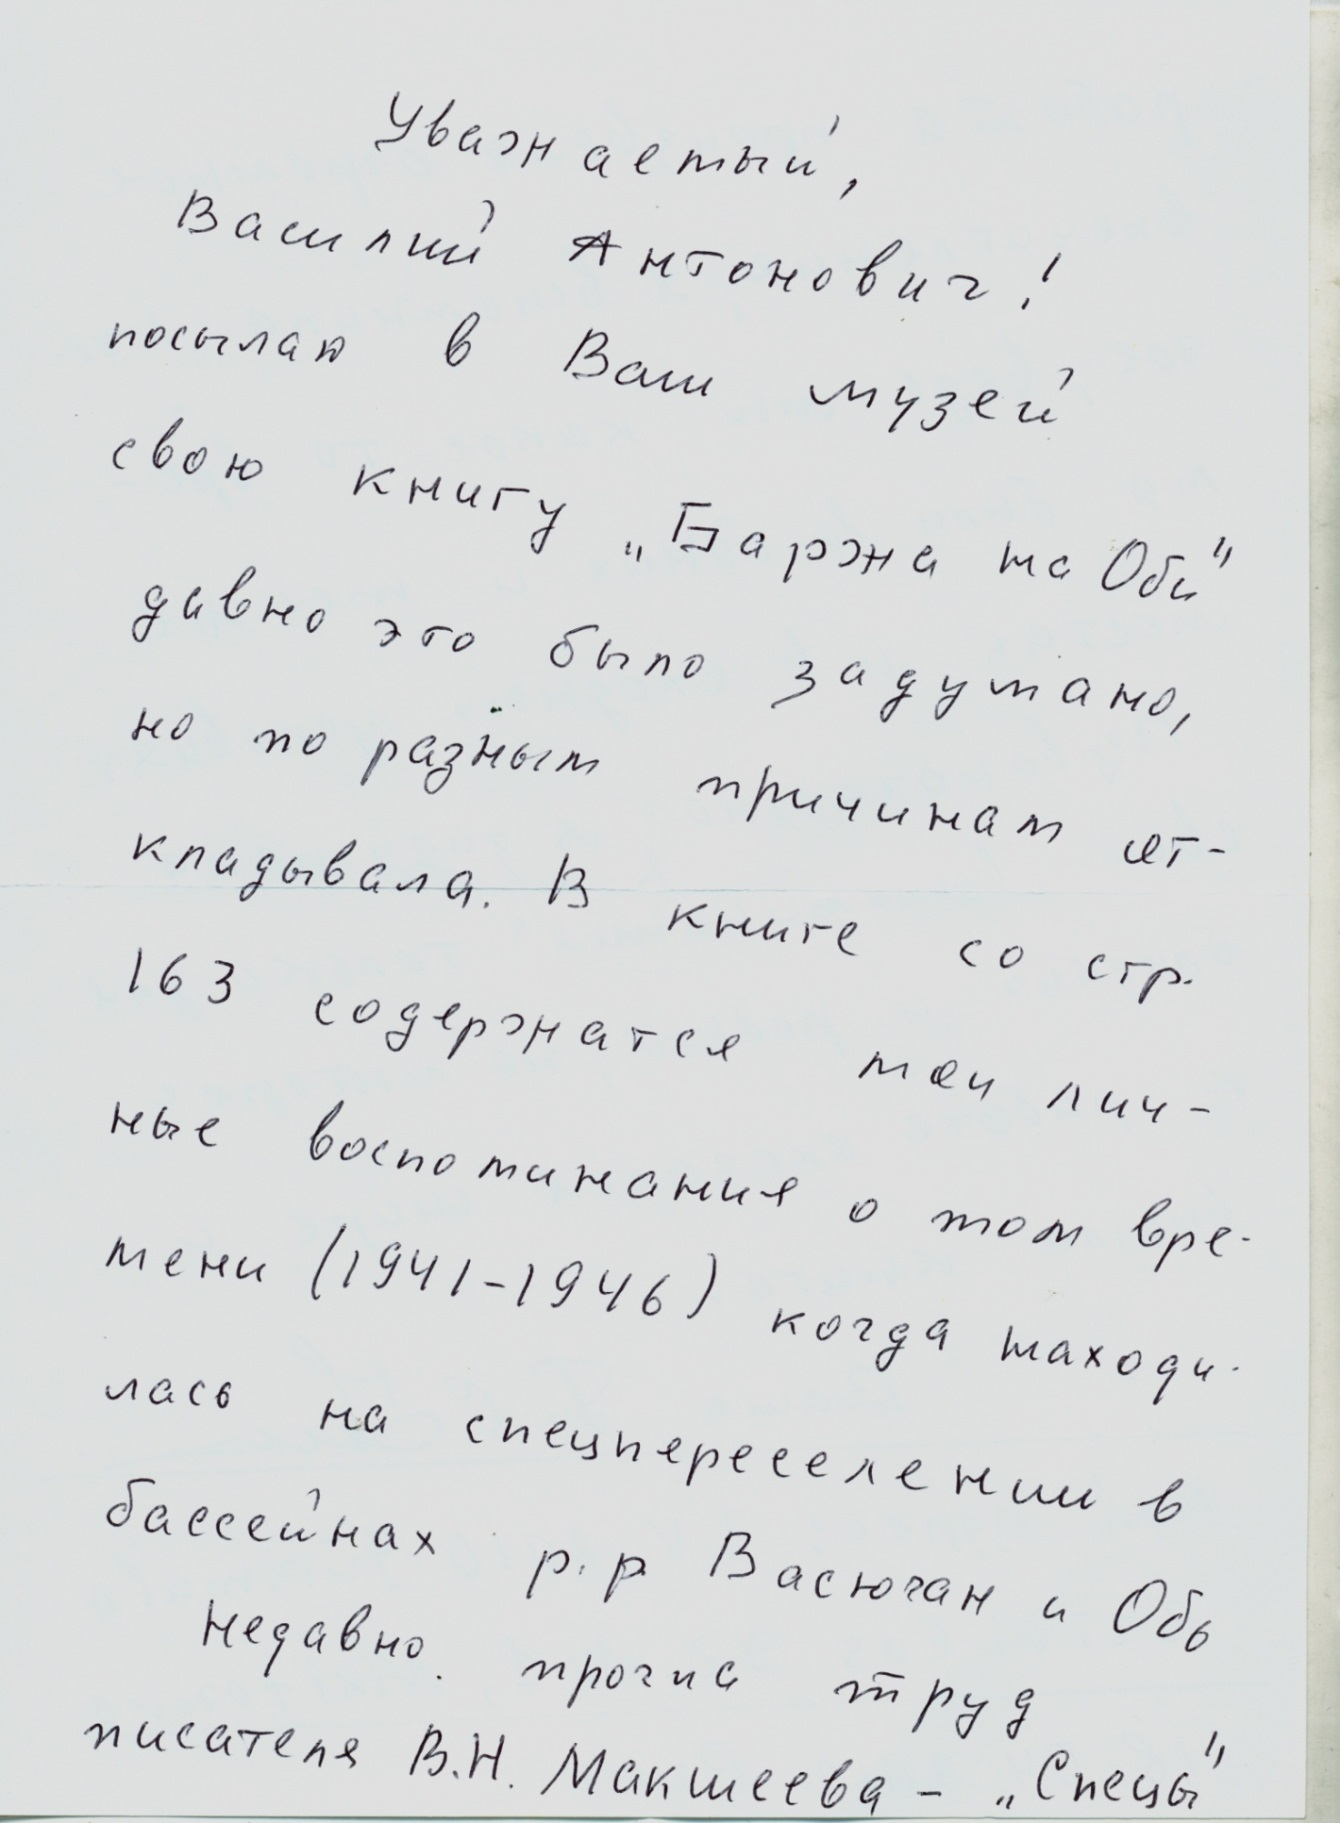 Уважаемый,
Василий Антонович!
посылаю в Ваш музей
свою книгу „Баржа на Оби"
давно это было задумано,
но по разным причинам от-
кладывала. В книге со стр.
163 содержатся мои лич-
ные воспоминания о том вре-
мени (1941-1946) когда находи-
лась на спецпереселении в
бассейнах р.р Васюган и Обь
Недавно прочла труд
писателя В.Н. Макшеева – „Спецы"